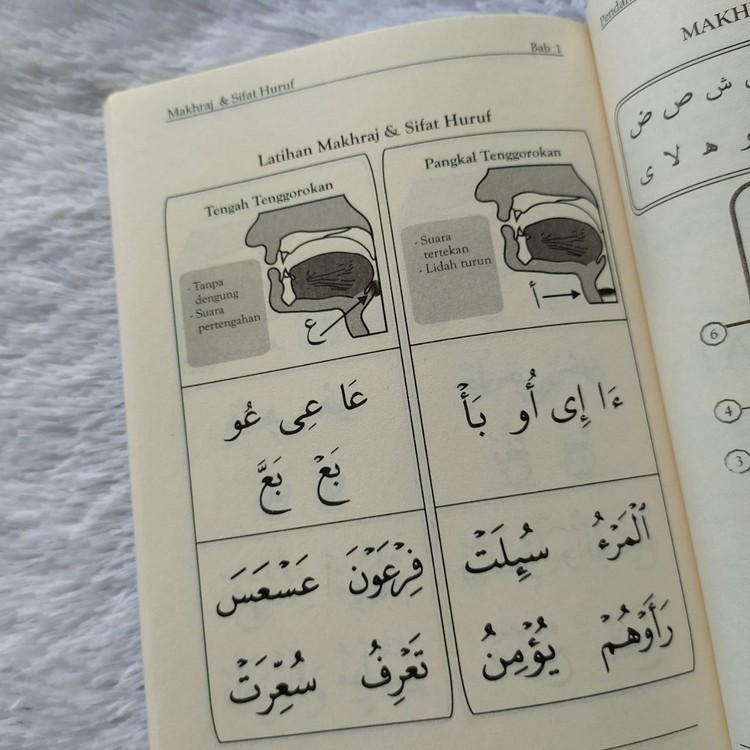 Makhraj & Sifat Huruf
Bab 1
Latihan Makhraj & Sifat Huruf
Pangkal Tenggorokan
- Suara
tertekan
- Lidah turun
أ
ءَا إِى أُو بَأْ
الْمَرْءُ سُئِلَتْ
رَأَوْهُمْ يُؤْمِنُ
Tengah Tenggorokan
- Tanpa
dengung
- Suara
pertengahan
ع
عَا عِى عُو
بَعْ بَعَّ
فِرْعَوْنَ عَسْعَسَ
تَعْرِفُ سُعِّرَتْ
MAKH
ش ص ض
و ه لا ى
6
4
3